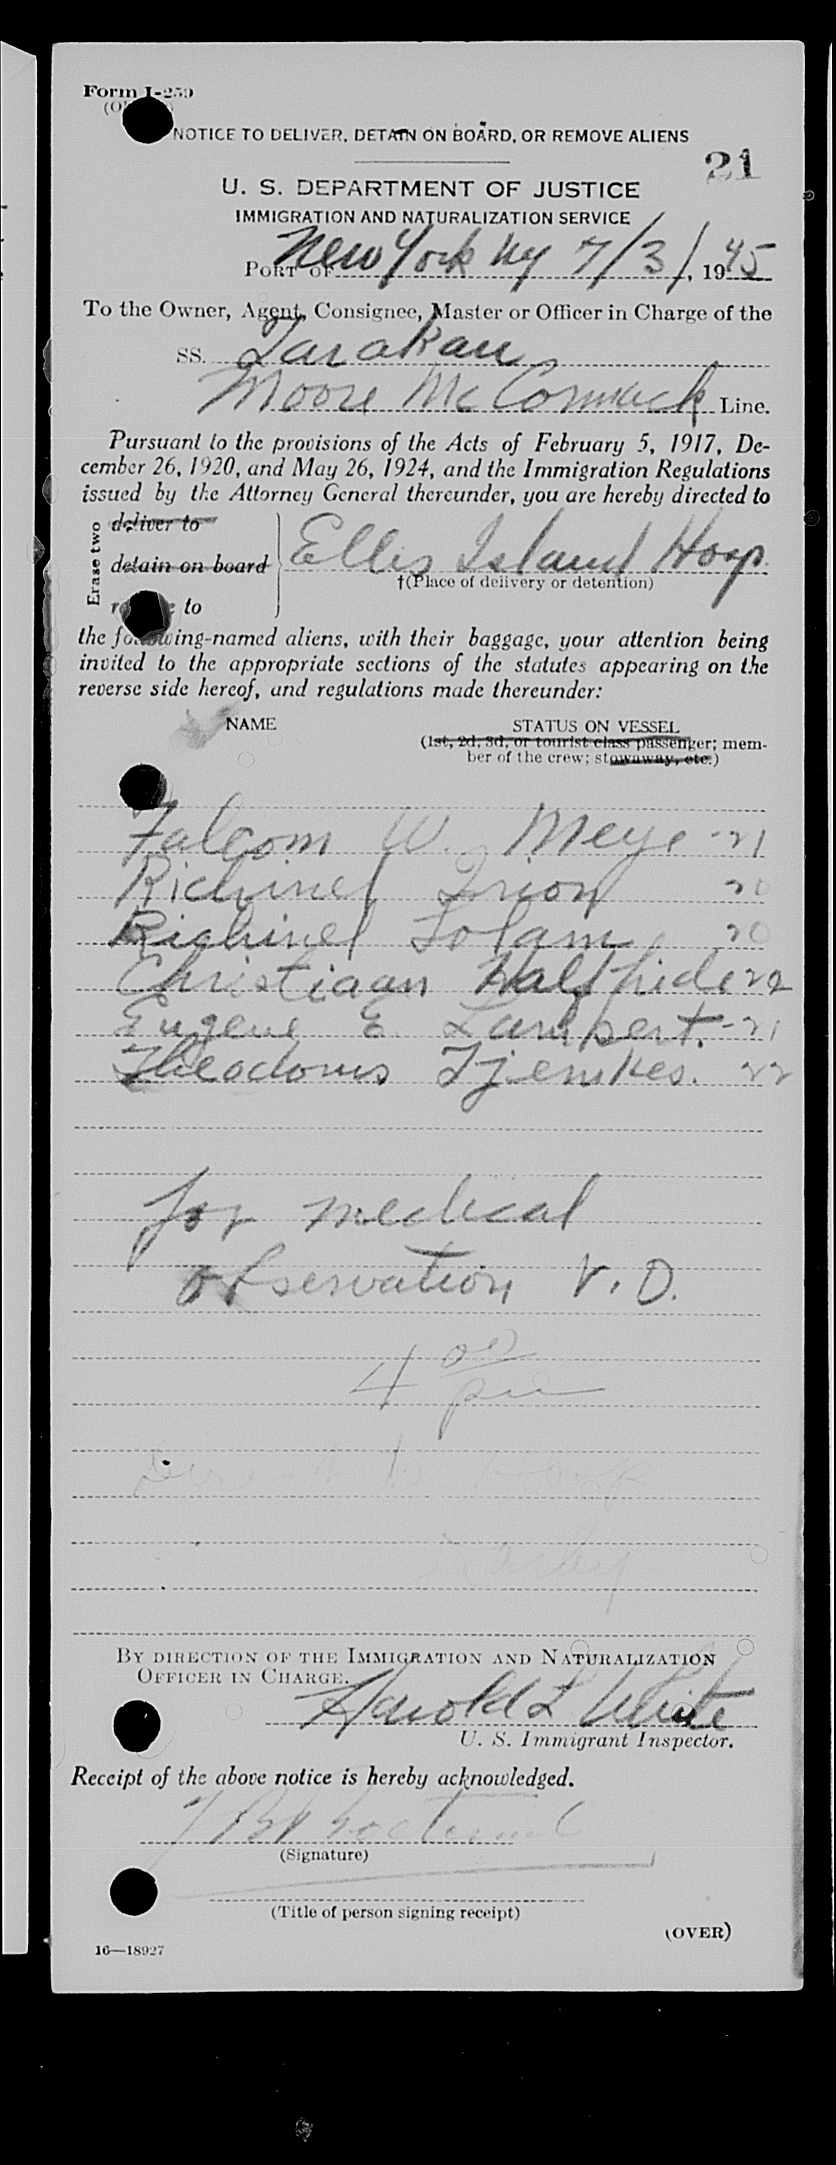 Form I-259
NOTICE TO DELIVER, DETAIN ON BOARD, OR REMOVE ALIENS
21
U. S. DEPARTMENT OF JUSTICE
IMMIGRATION AND NATURALIZATION SERVICE
PORT OF New York Ny 7/3/, 1945
To the Owner, Agent, Consignee, Master or Officer in Charge of the
SS. Tarakan
Moore McCormack Line.
Pursuant to the provisions of the Acts of February 5, 1917, De-
cember 26, 1920, and May 26, 1924, and the Immigration Regulations
issued by the Attorney General thereunder, you are hereby directed to
Erase two
deliver to
detain on board
to
Ellis Island Hosp.
†(Place of delivery or detention)
the following-named aliens, with their baggage, your attention being
invited to the appropriate sections of the statutes appearing on the
reverse side hereof, and regulations made thereunder:
NAME STATUS ON VESSEL
(1st, 2d, 3d, or tourist class passenger; mem-
ber of the crew; stowaway, etc.)
Falcom W. Meye - 21
Richinel Trion 20
Richinel Tolam 20
Christiaan Halfhide 22
Eugene E. Lampert. - 21
Theodorus Tjemkes. 22
for medical
observation V. D.
4 00 pm
BY DIRECTION OF THE IMMIGRATION AND NATURALIZATION
OFFICER IN CHARGE.
Harold L White
U. S. Immigrant Inspector.
Receipt of the above notice is hereby acknowledged.
(Signature)
(Title of person signing receipt)
(OVER)
16—18927